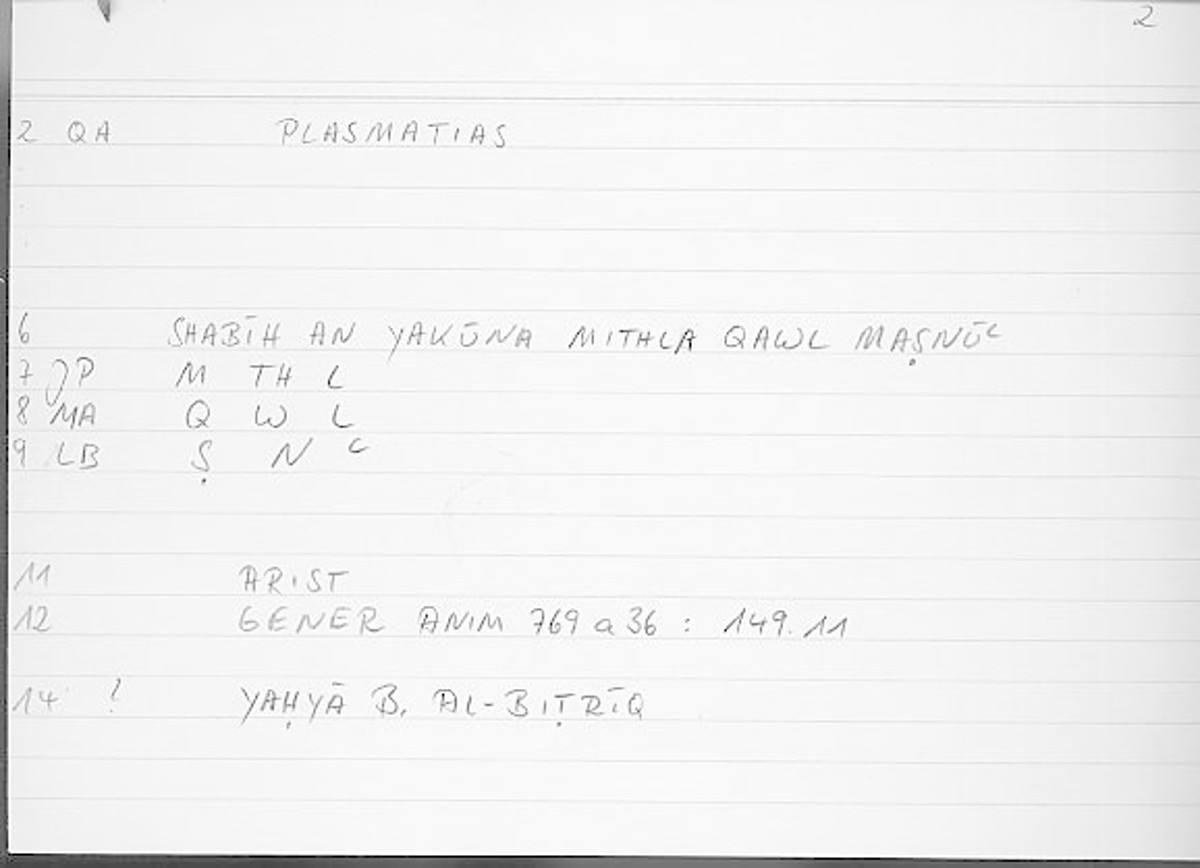 2
2 QA PLASMATIAS
6 SHABĪH AN YAKŪNA MITHLA QAWL MAṢNŪʿ
7 JP M TH L
8 MA Q W L
9 LB Ṣ N ʿ
11 ARIST
12 GENER ANIM 769 a 36 : 149.11
14 ? YAḤYĀ B. AL-BIṬRĪQ